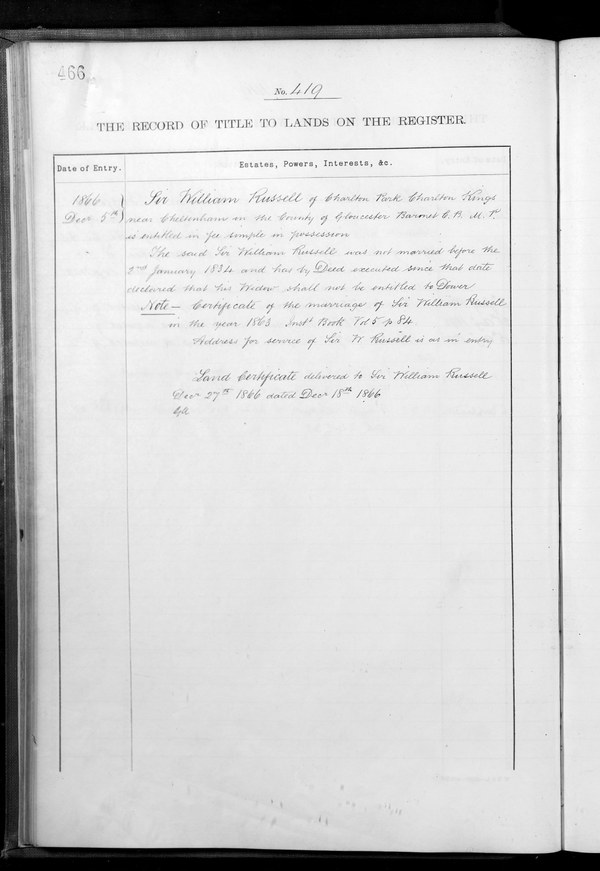 466
No. 419
THE RECORD OF TITLE TO LANDS ON THE REGISTER.
Date of Entry.
Estates, Powers, Interests, &c.
1866
Decr 5th
Sir William Russell of Charlton Park Charlton Kings
near Cheltenham in the County of Gloucester Baronet C.B. M.P.
is entitled in fee simple in possession
The said Sir William Russell was not married before the
2nd January 1834 and has by Deed executed since that date
declared that his Widow shall not be entitled to Dower
Note — Certificate of the marriage of Sir William Russell
in the year 1863 Inst Book Vol 5 p 84
Address for service of Sir W Russell is as in entry
Land Certificate delivered to Sir William Russell
Decr 27th 1866 dated Decr 18th 1866